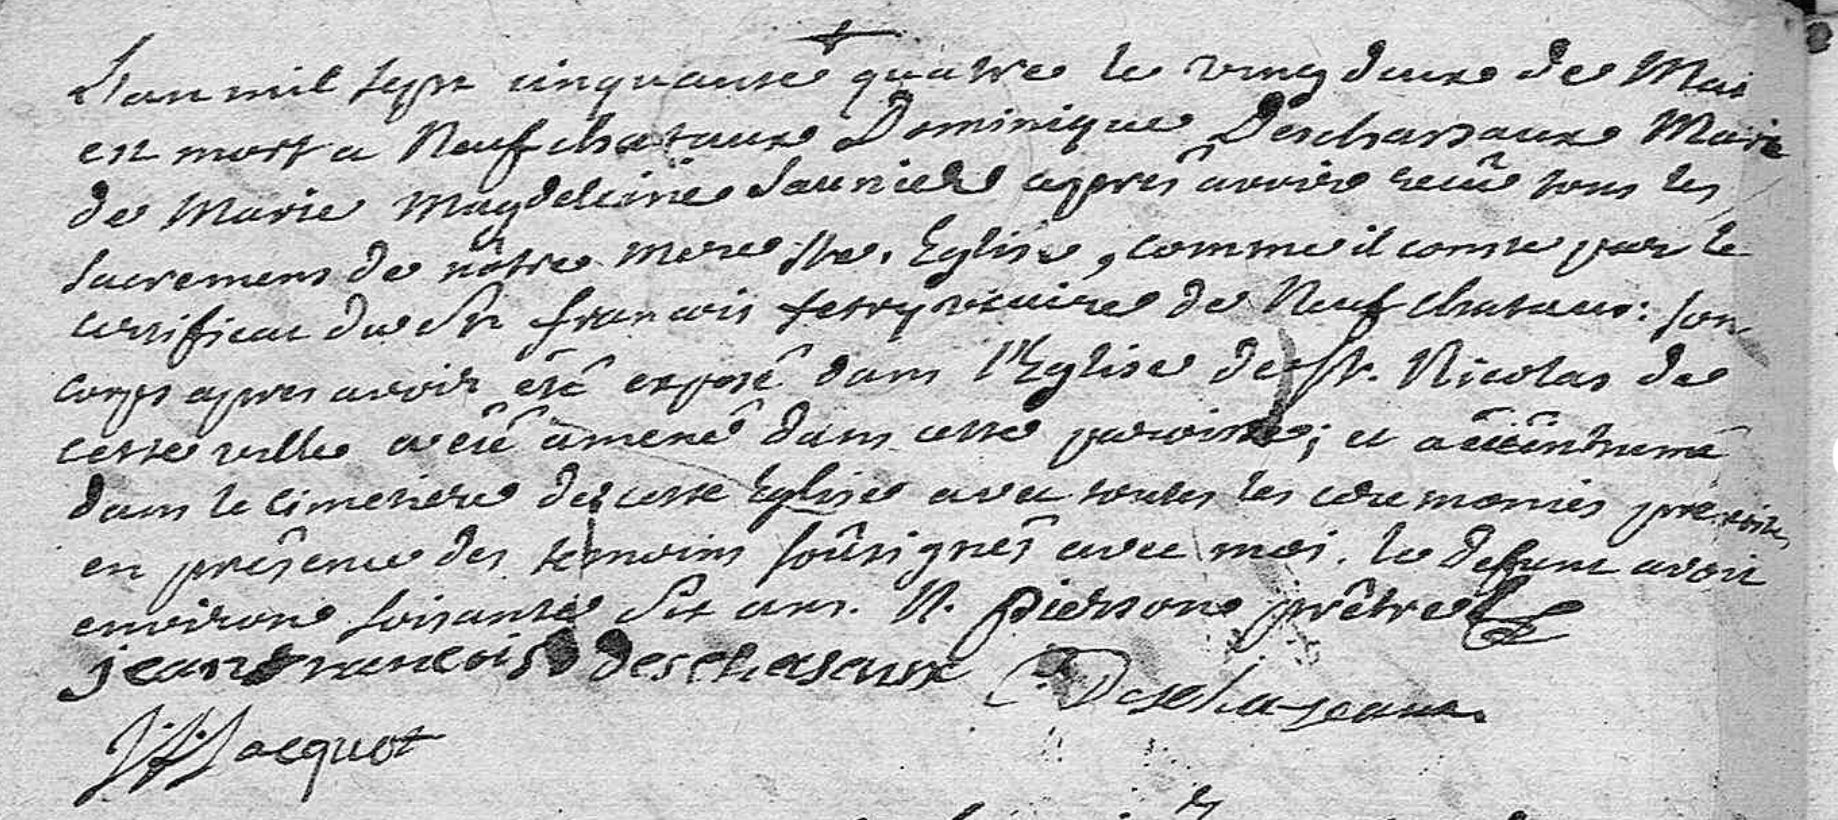 L'an mil sept cinquante quatre le ving deux de Mai
est mort a Neufchateaux Dominique Deschaseaux Marie
de Marie Magdeleine Saunier après avoir recû tous les
sacremens de nôtre mere Ste. Eglise, comme il conste par le
certificat du Sr françois ferry vicaire de Neufchateau: son
corps apres avoir êtê exposê dans l'Eglise de St. Nicolas de
cette ville a étê amenê dans cette paroisse; et a étê inhumê
dans le cimetiere de cette Eglise avec toutes les ceremonies
en prêsence des temoins soûsignês avec moi. le defunt avoit
environ soisante six ans. N. pierson prêtre
jean francois deschaseaux C Deschaseaux
J.f. Jacquot